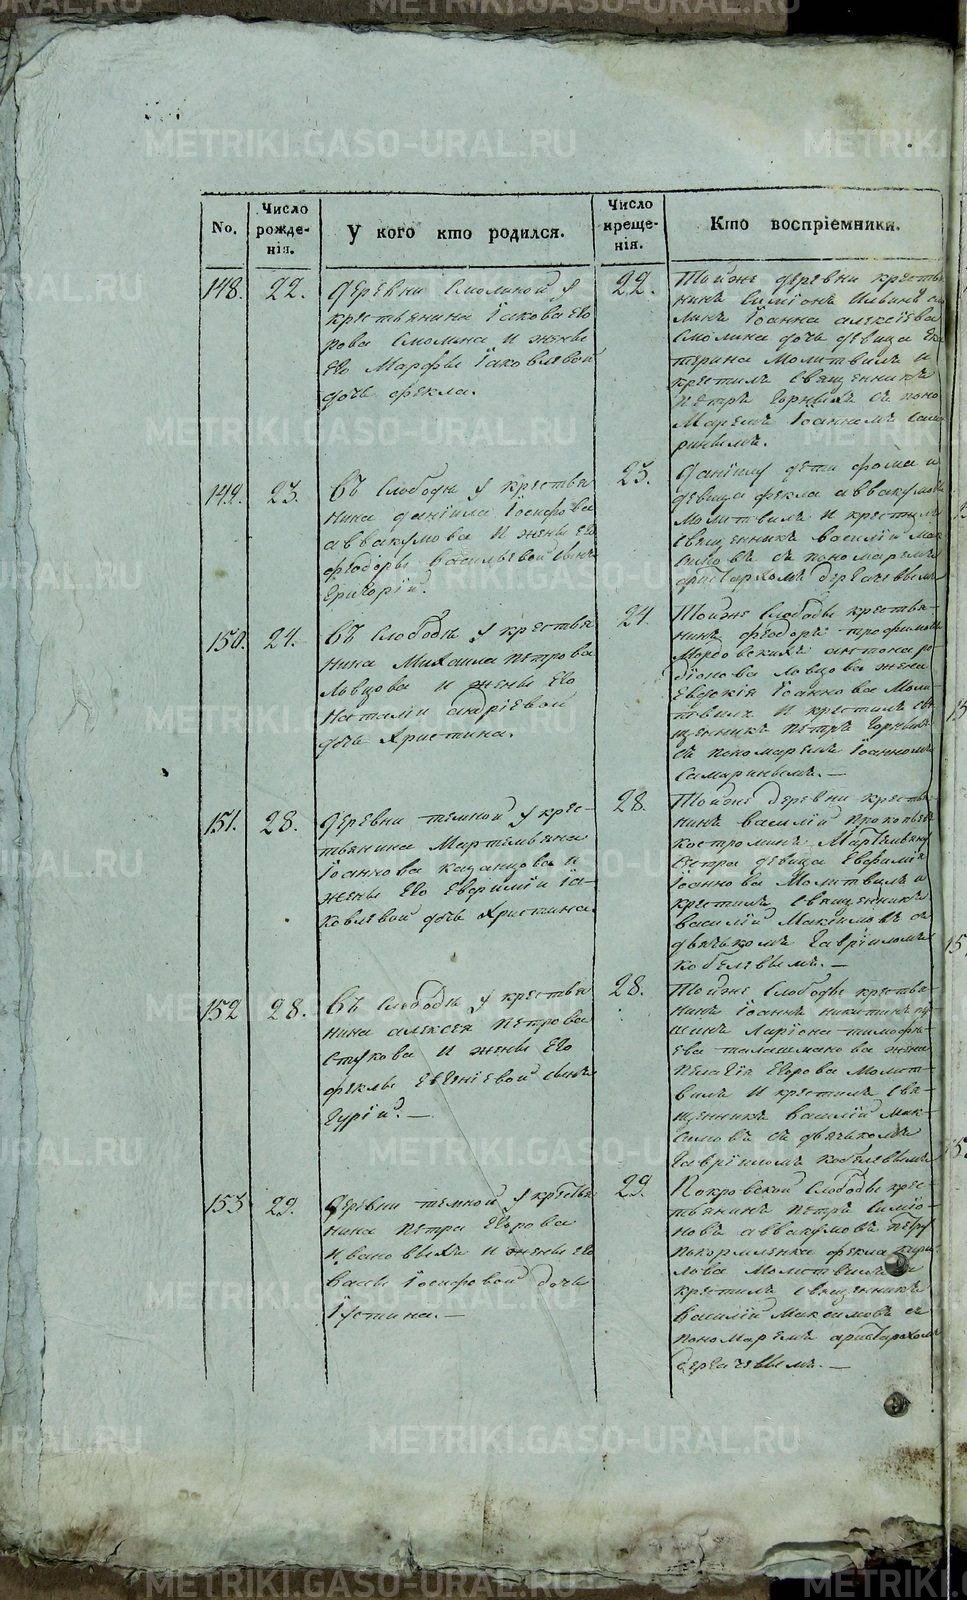 No.
Число рожде-нія.
У кого кто родился.
Число креще-нія.
Кто воспріемники.
148.
22.
Деревни Смолиной у
крестьянина Іакова Его
рова Смолина и жены
Его Марфы Іаковлевой
дочь Фекла.
22.
Тойже деревни кресть
нинъ Симіонъ Ильинъ
Іоанна алексіева
Смолина дочь девица Ека
терина молитвилъ и
крестилъ Священникъ
Петръ Горныхъ съ поно
Маремъ Іоанномъ Сама
ринымъ.
149.
23.
Въ Слободе у крестья
нина даніила Іосифова
аввакумова и жены Его
феодоры васильевой сынъ
Григорій.
23.
даніилу дети фома и
девица фекла аввакумовы
Молитвилъ И крестилъ
Священникъ василій Мак
симовъ съ пономаремъ
аристархомъ дергачевымъ
150.
24.
Въ Слободе у крестья
нина Михаила петрова
Львцова и жены Его
Наталіи андріевой
дочь Христина.
24.
Тойже Слободы крестья-
нинъ феодоръ трофимовъ
Мордовскихъ антона ро
діонова Львцова жена
Евдокія Іоаннова Моли-
твилъ И крестилъ Свя
щенникъ петръ Горныхъ
съ пономаремъ Іоанномъ
Самаринымъ. —
151.
28.
Деревни темной у крес-
тьянина Мартемьяна
Іоаннова казанцова и
жены Его Евфиміи Іа-
ковлевой дочь Христина
28.
Тойже деревни крестья
нинъ василій прокопьевъ
костроминъ Мартемьяну
Сестра девица Евфимія
Іоаннова Молитвилъ и
крестилъ Священникъ
василій Максимовъ съ
дьячькомъ Гавріиломъ
кобелевымъ. —
152
28.
Въ Слободе у крестья
нина алексея петрова
Стукова и жены Его
феклы Евгеніевой сынъ
Гурій. —
28.
Тойже Слободы крестья-
нинъ Іоаннъ никитинъ
шинъ Ларіона тимофе-
ева талашманова жена
пелагія Егорова молит-
вилъ И крестилъ Свя-
щенникъ василій Мак-
симовъ съ дьячькомъ
Гавріиломъ кобелевымъ
153
29.
Деревни темной у крестья
нина петра Егорова
Ивановыхъ и жены его
Іосифовой дочь
Іустина. —
29.
Покровской Слободы крес-
тьянинъ петръ симіо-
новъ аввакумовъ петру
покормленка фекла кири
лова Молитвилъ и
крестилъ Священникъ
василій Максимовъ съ
пономаремъ аристархомъ
дергачевымъ. —
METRIKI.GASO-URAL.RU